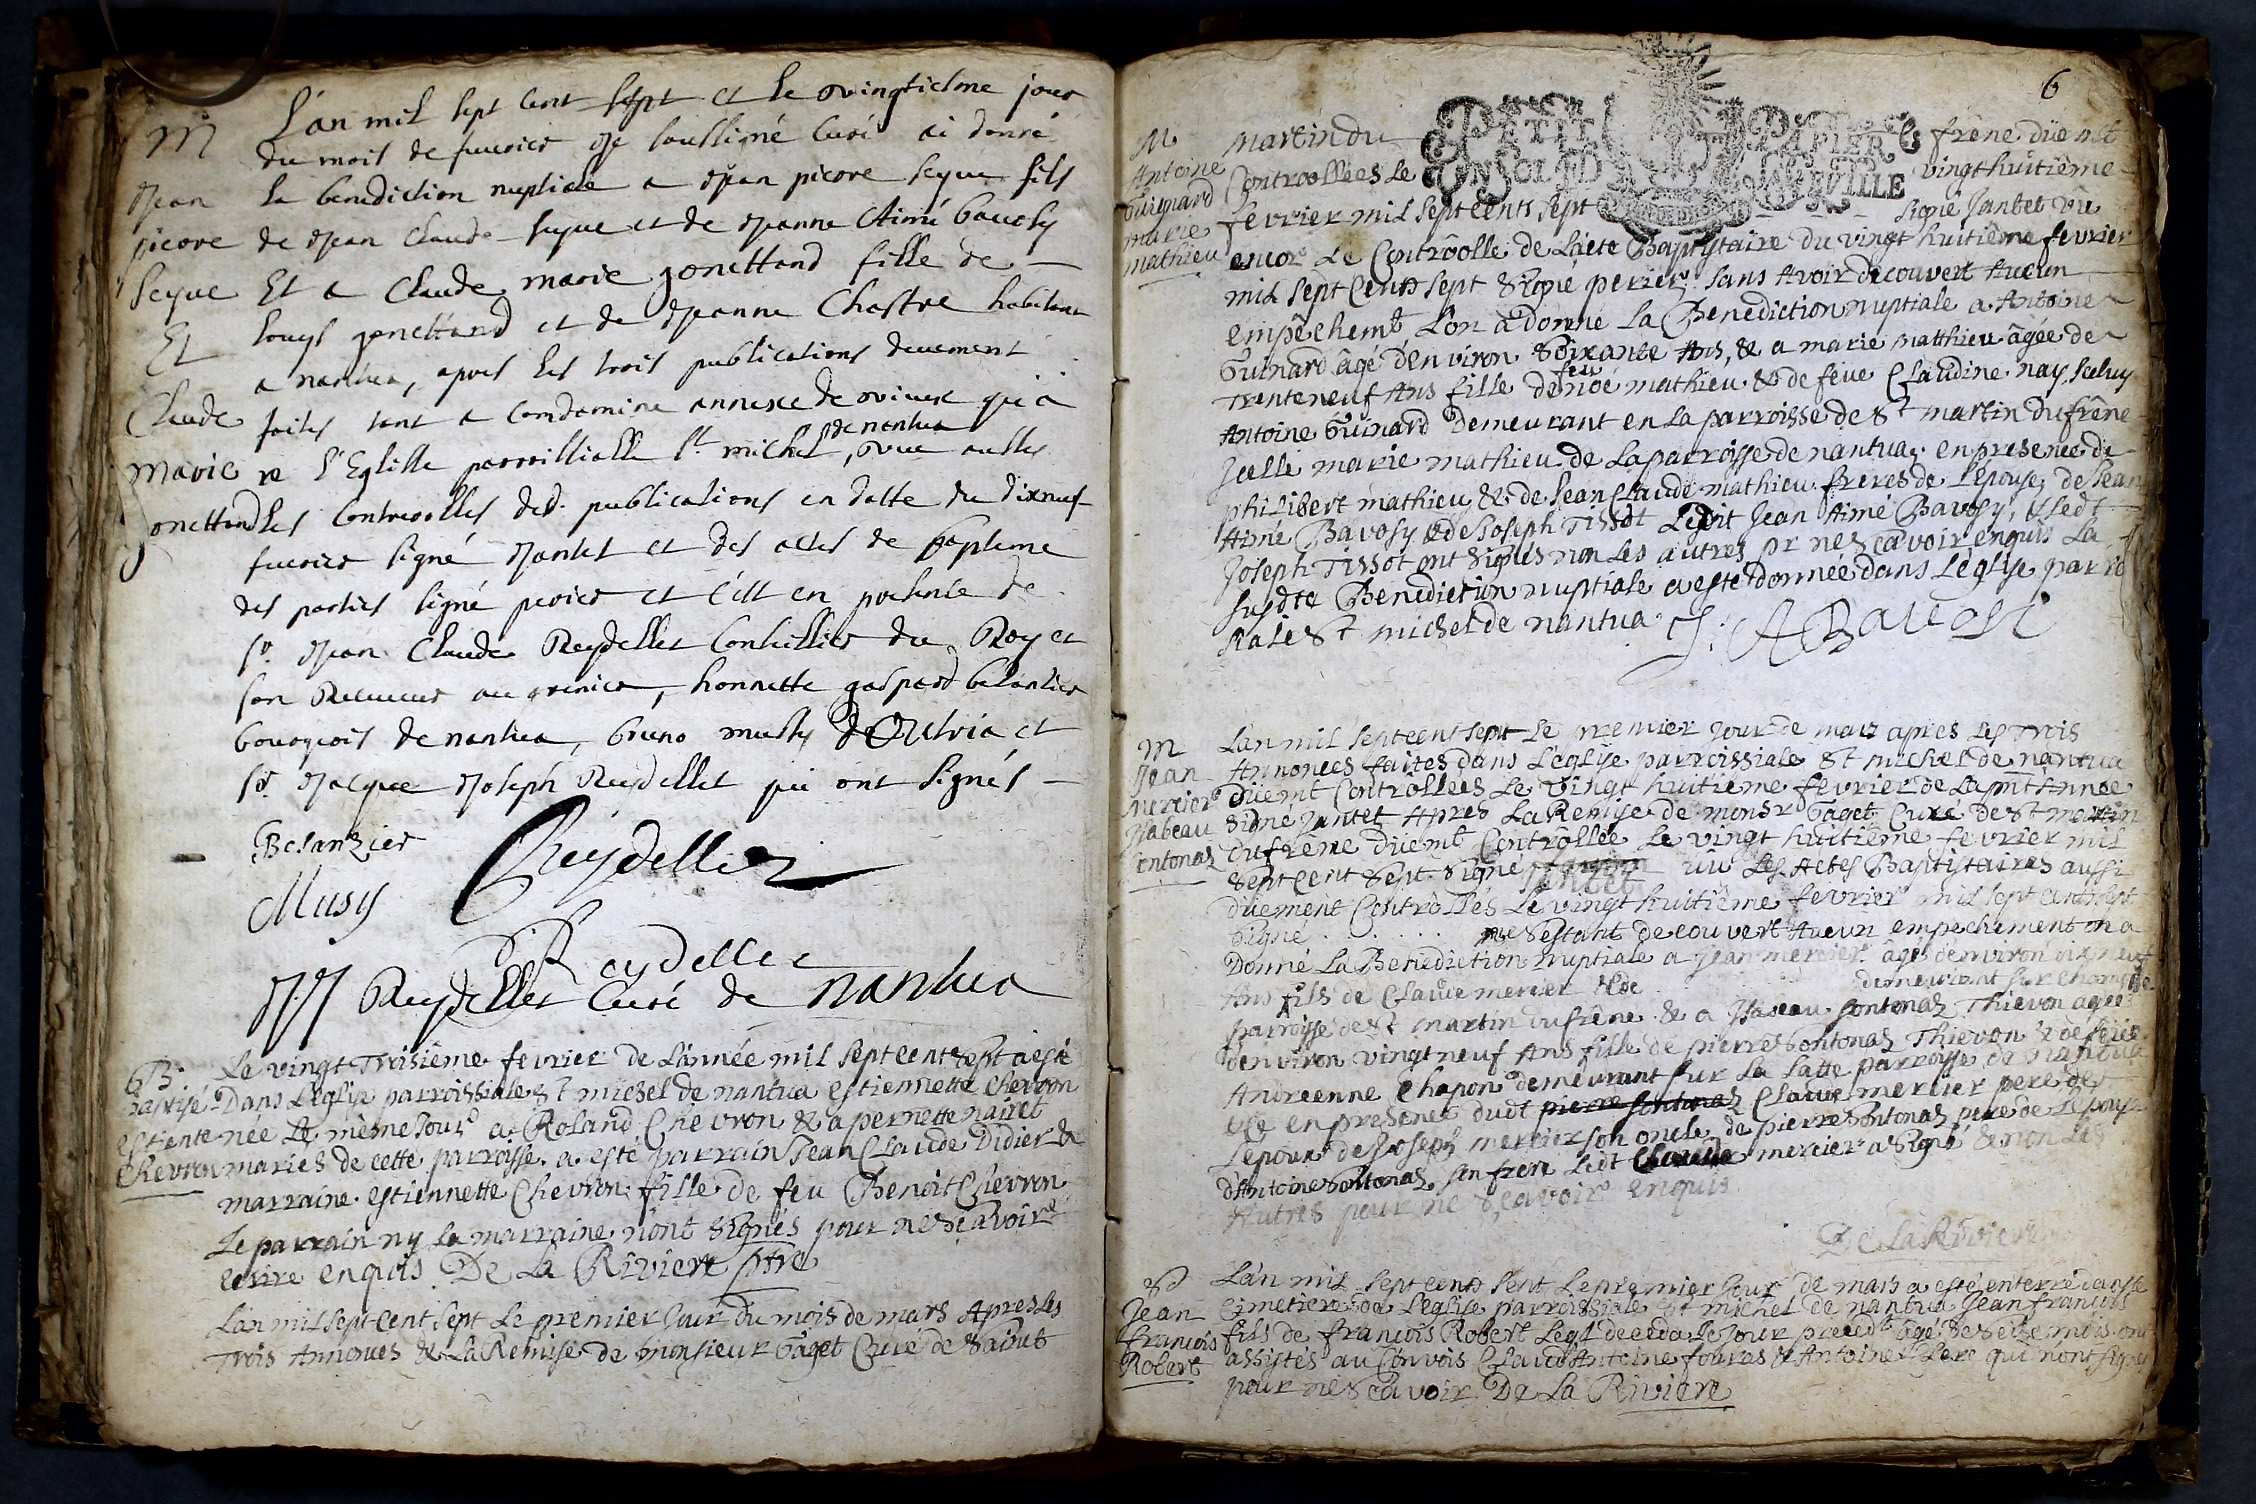 M
Jean
picore
seyve
Et
Claude
Marie
Jonettand
L'an mil sept cent sept et le vingtiesme jour
du mois de feuvrier Je soussigné Curé ai donné
la benediction nuptiale a Jean picore seyve fils
de Jean Claude seyve et de Jeanne Aimé bavosy
Et a Claude marie jonettand fille de
Louys jonettand et de Jeanne Chastre habitant
a nantua, apres les trois publications deuement
faites tant a Condamine annexe de vieux qu'a
l'Eglise parroissialle St. michel de nantua, vue aussy
les Controolles des d. publications en datte du dixneuf
fuvrier signé Jantet et des actes de baptême
des parties signé perier et c'est en presence de
sr. Jean Claude Reydellet Conseillier du Roy et
son Receveur au grenier, honnette gaspard belanzier
bourgeois de nantua, bruno musy et
sr. Jacque Joseph Reydellet qui ont signés
Belanzier
Reydellet
Musy
Reydellet
JJ Reydellet Curé de nantua
B
Baptisé
estiennette
Chevron
Le vingt Troisième fevrier de L'année mil sept cents sept a esté
Dans L'eglise parroissiale St michel de nantua estiennette Chevron
née Le même Jour a Roland Chevron & a pernette nairet
mariés de cette parroisse. a esté parrain Jean Claude Didier &
marraine estiennette Chevron fille de feu Benoit Chevron
Le parrain ny La marraine n'ont signés pour ne sçavoir
écrire enquis. De La Riviere ptre
L'an mil sept Cent sept Le premier Jour du mois de mars Apres Les
Trois Annonces & La Remise de monsieur Gaget Curé de Saint
6
PETIT PAPIER
M
Antoine
Guignard
marie
mathieu
martin du frêne düemt
Controollées Le vingt huitième
fevrier mil sept cents sept signé Jantet vû
encor Le Controolle de L'acte Baptistaire du vingt huitième fevrier
mil sept Cents sept signé perier. sans Avoir découvert Aucun
empêchemt L'on a donné La Benediction nuptiale a Antoine
Guinard âgé d'environ Soixante Ans, & a marie matthieu âgée de
Trente neuf Ans fille de feu noé mathieu & de feüe Claudine nay, Iceluy
Antoine Guinard Demeurant en La parroisse de St martin du frêne
Icelle marie mathieu de La parroisse de nantua. en presence de
philibert mathieu & de Jean Claude mathieu freres de L'épouse, de Jean
Aimé Bavosy & de Joseph Tissot Ledit Jean Aimé Bavosy, & Ledt
Joseph Tissot ont signés non Les autres pr ne sçavoir enquis La
susdte Benediction nuptiale a esté donnée dans L'église parro
isiale St michel de nantua. J. A Bavosi
M
Jean
mercier
Isabeau
Sontonaz
L'an mil sept cent sept Le premier Jour de mars apres Les Trois
Annonces faites dans L'eglise parroissiale St michel de nantua
düemt Controllées Le vingt huitième fevrier de La pnt Année
signé Jantet Apres La Remise de monsr Gaget Curé de St martin
du frêne düemt Controllée Le vingt huitième fevrier mil
sept Cent sept. signé Jantet vû Les Actes Baptistaires aussi
düement Controllés Le vingt huitième fevrier mil sept Cent sept
signé . . . . . ne s'estant decouvert Aucun empechement on a
Donné La Benediction nuptiale a Jean mercier âgé d'environ
Ans fils de Claude mercier & de demeurant sur
parroisse de St martin du frêne & a Isabeau Sontonaz Thievon agée
d'environ vingt neuf Ans fille de pierre Sontonaz Thievon & de feüe
Andreenne Chapon demeurant sur La Latte parroisse de nantua
en presence dudt pierre Sontonaz Claude mercier pere de
L'epoux de Joseph mercier son oncle, de pierre Sontonaz pere de L'epouse
d'Antoine Sontonaz son frere Ledt Claude mercier a signé & non Les
Autres pour ne sçavoir enquis
De La Riviere
S
Jean
François
Robert
L'an mil sept cents sept Le premier Jour de mars a esté enterré dans le
Cimetiere de L'eglise parroissiale St michel de nantua Jean françois
fils de françois Robert Leql decéda Le Jour precedt âgé de seize mois. ont
assistés au Convois Claude Antoine fouras & Antoine Lere qui n'ont signé
pour ne sçavoir. De La Riviere